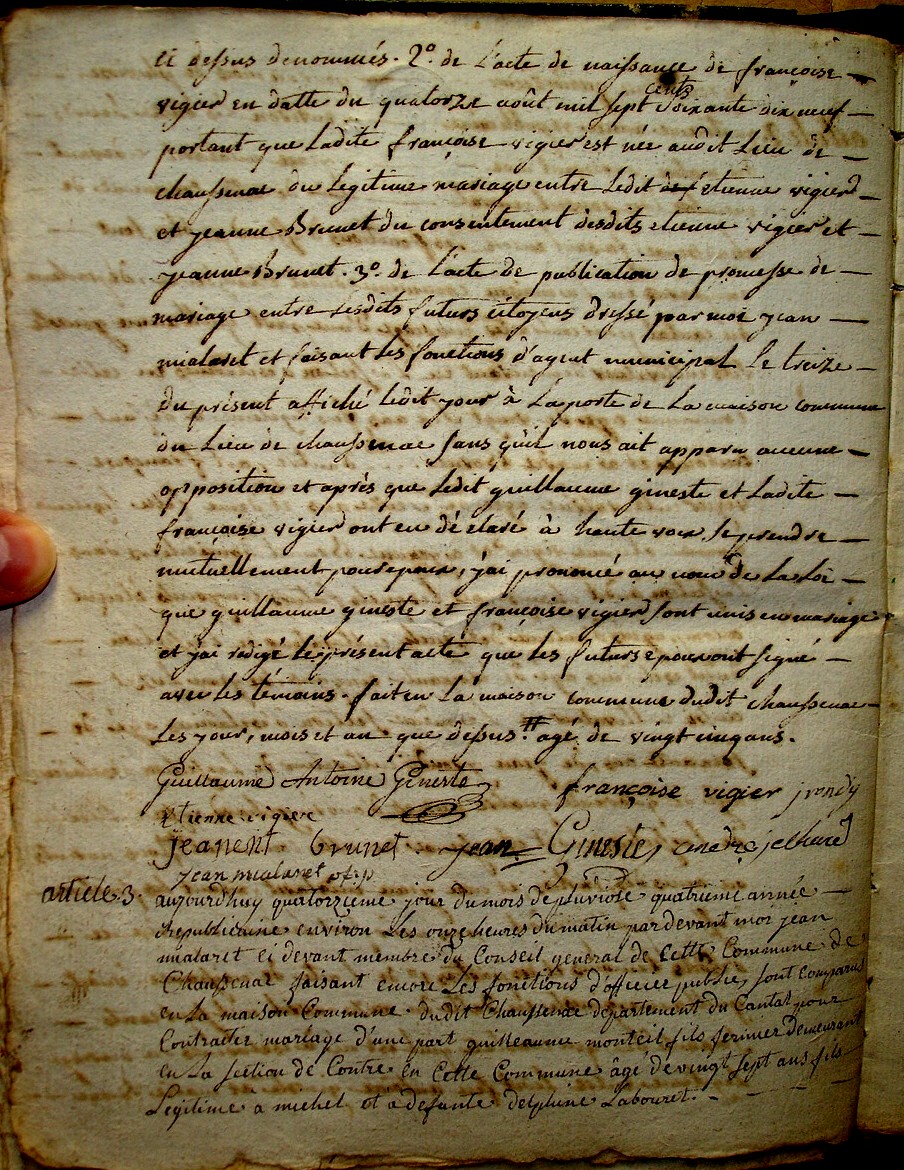 ci dessus denommés. 2.º de l'acte de naissance de françoise —
vigier en datte du quatorze août mil sept cents Soixante dix neuf —
portant que Ladite françoise vigier est née audit Lieu de —
chaussenac du Legitime mariage entre Ledit etienne vigier —
et jeanne Brunet du consentement desdits etienne vigier et —
jeanne Brunet. 3.º de L'acte de publication de promesse de —
mariage entre Lesdits futurs citoyens dressé par moi jean —
mialaret et faisant les fonctions d'agent municipal Le treize —
du présent affiché Ledit jour à La porte de La maison commune
du Lieu de chaussenac sans qu'il nous ait apparu aucune —
opposition et après que Ledit guillaume gineste et Ladite —
françoise vigier ont eu déclaré à haute voix Se prendre —
mutuellement pour epoux, j'ai prononcé au nom de La Loi —
que guillaume gineste et françoise vigier sont unis en mariage
et j'ai redigé le présent acte que les futurs epoux ont signé —
avec les témoins. fait en La maison commune dudit chaussenac —
Les jour, mois et an que dessus. # agé de vingt cinq ans.
Guillaume Antoine Gineste françoise vigier jrondy
Etienne vigier
jeanent brunet jean Gineste, andre jelhard
jean mialaret of. p
article 3 aujourdhuy quatorzieme jour du mois de pluviose quatrieme année —
republicaine environ Les onze heures du matin par devant moi jean
mialaret ci devant membre du Conseil general de Cette Commune de
Chaussenac faisant encore Les fonctions d'officier public, sont comparus
en La maison Commune dudit Chaussenac departement du Cantal pour
Contracter mariage d'une part guilleaume monteil fils fermier demeurant
en La section de Contre en Cette Commune âge de vingt sept ans fils
Legitime à michel et à defante delphine Labouret. —